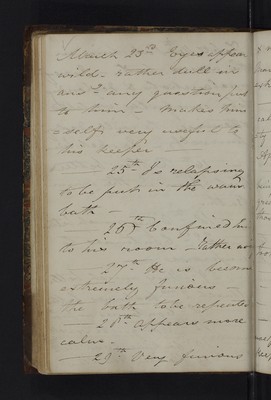 March 23rd Eyes appear
wild - rather dull in
ans^g any question put
to him - makes him
self very useful to
his keeper -
25th Is relapsing
to be put in the warm
bath -
26th Confined
to his room - rather
27th He is become
extremely furious -
the bath to be repeated
28th appears more
calm -
29th Very furious